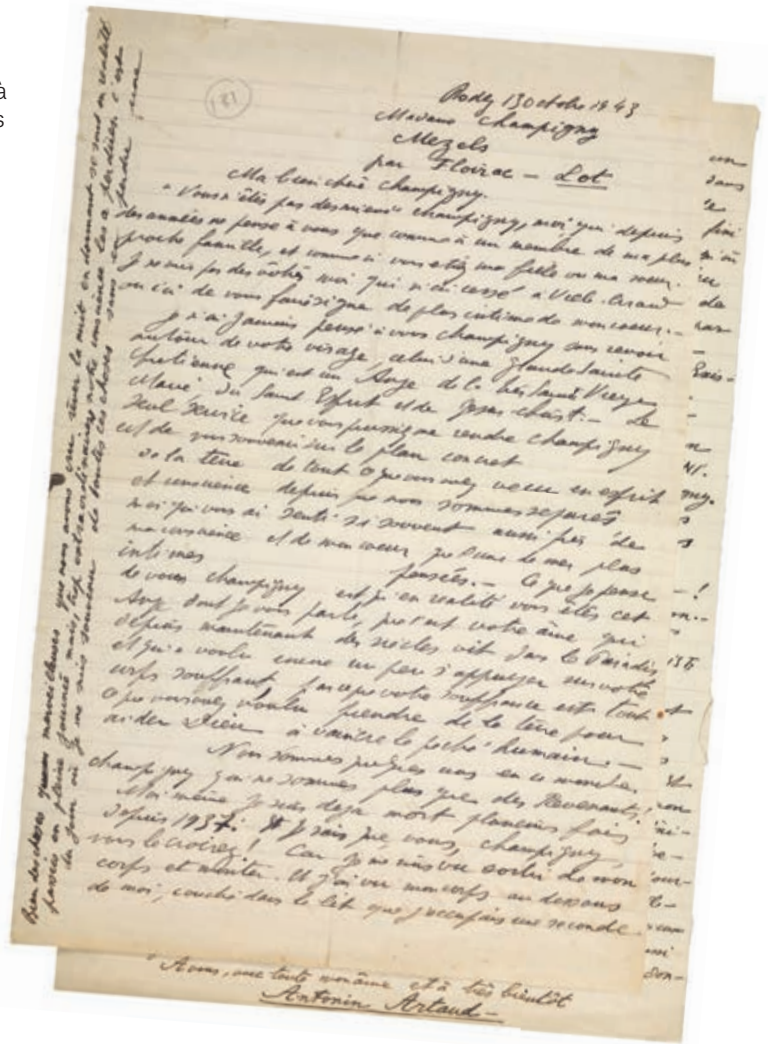 à
s
181
Rodez 13 octobre 1943
Madame Champigny
Mezels
par Floirac – Lot
Ma bien chère Champigny.
Vous n'êtes pas des miens Champigny, moi qui depuis
des années ne pense à vous que comme à un membre de ma plus
proche famille, et comme si vous étiez ma fille ou ma sœur.
Je ne suis pas des vôtres moi qui n'ai cessé à Ville-Evrard
ou ici de vous faire signe du plus intime de mon cœur. –
Je n'ai jamais pensé à vous Champigny sans revoir
autour de votre visage, celui d'une grande Sainte
chrétienne qui est un Ange de la très Sainte Vierge
Marie du Saint Esprit et de Jésus-christ. – Le
seul service que vous puissiez me rendre Champigny
est de vous souvenir sur le plan concret
de la terre de tout ce que vous avez vécu en esprit
et conscience depuis que nous sommes séparés
moi qui vous ai senti si souvent aussi près de
ma conscience et de mon cœur que l'une de mes plus
intimes pensées. – Ce que je pense
de vous Champigny est qu'en réalité vous êtes cet
Ange dont je vous parle, que c'est votre âme qui
depuis maintenant des siècles vit dans le Paradis
et qui a voulu encore un peu s'appuyer sur votre
corps souffrant parce que votre souffrance est tout
ce que vous avez voulu prendre de la terre pour
aider Dieu à vaincre le péché humain. –
Nous sommes quelques uns en ce monde
Champigny qui ne sommes plus que des Revenants,
Moi même je suis déjà mort plusieurs fois
depuis 1937 : Et je sais que vous, Champigny,
vous le croirez ! Car je me suis vu sortir de mon
corps et monter. Et j'ai vu mon corps au dessous
de moi, couché dans le lit que j'occupais une seconde
Bien des choses merveilleuses que nous avons cru rêver la nuit en dormant se sont en réalité
passées en pleine journée mais, trop extraordinaires notre conscience les a perdues, c'est
du jour où je me suis souvenu de toutes ces choses sans en perdre une
A vous, avec toute mon âme et à très bientôt
Antonin Artaud –